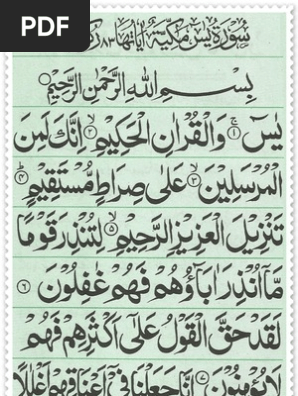 PDF
سُورَةُ يٰسٓ مَكِّيَّةٌ اٰيَاتُهَا ٨٣
بِسْمِ اللهِ الرَّحْمٰنِ الرَّحِيْمِ
يٰسٓ ﴿١﴾ وَالْقُرْاٰنِ الْحَكِيْمِ ﴿٢﴾ اِنَّكَ لَمِنَ
الْمُرْسَلِيْنَ ﴿٣﴾ عَلٰى صِرَاطٍ مُّسْتَقِيْمٍ ﴿٤﴾
تَنْزِيْلَ الْعَزِيْزِ الرَّحِيْمِ ﴿٥﴾ لِتُنْذِرَ قَوْمًا
مَّاۤ اُنْذِرَ اٰبَآؤُهُمْ فَهُمْ غٰفِلُوْنَ ﴿٦﴾
لَقَدْ حَقَّ الْقَوْلُ عَلٰۤى اَكْثَرِهِمْ فَهُمْ
لَا يُؤْمِنُوْنَ ﴿٧﴾ اِنَّا جَعَلْنَا فِيْۤ اَعْنَاقِهِمْ اَغْلٰلًا